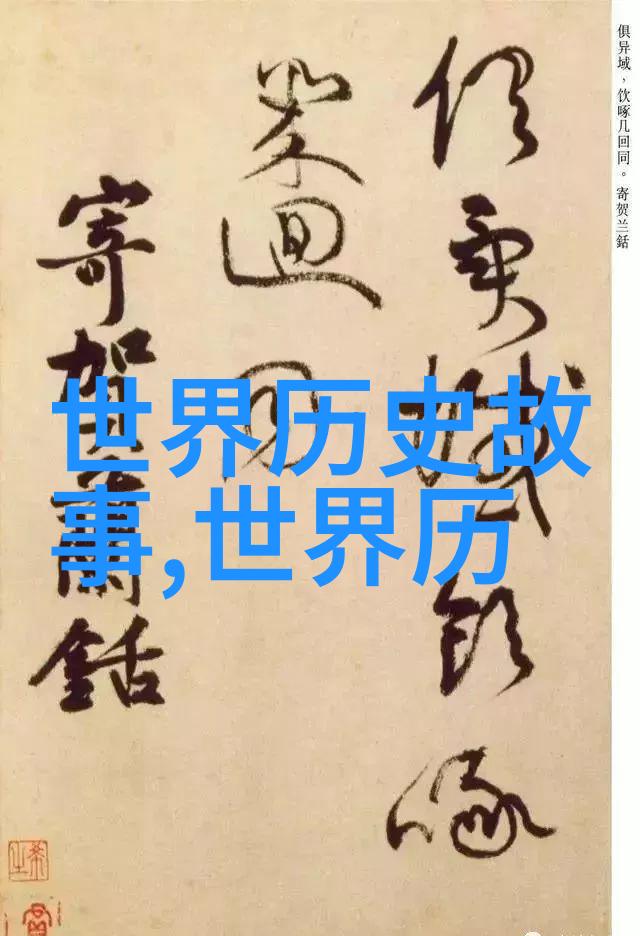 俱异域，饮啄几回同。寄贺兰銛
俱異域飲啄
幾迴同
寄賀蘭銛
世界历史故
事,世界历